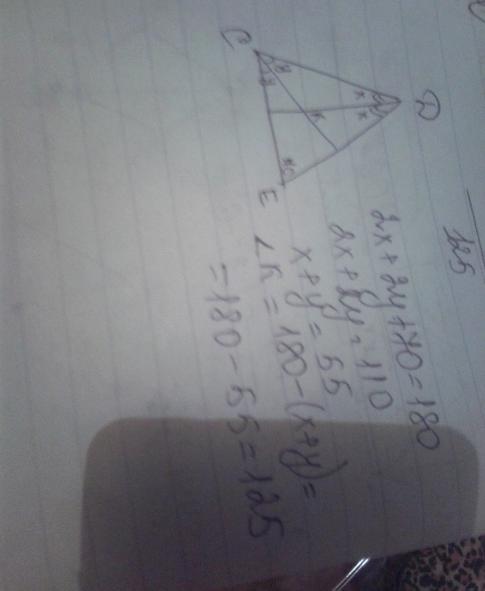 125
D
x x
K
y
y
70
C
E
2x + 2y + 70 = 180
2x + 2y = 110
x + y = 55
∠K = 180 - (x+y) =
= 180 - 55 = 125